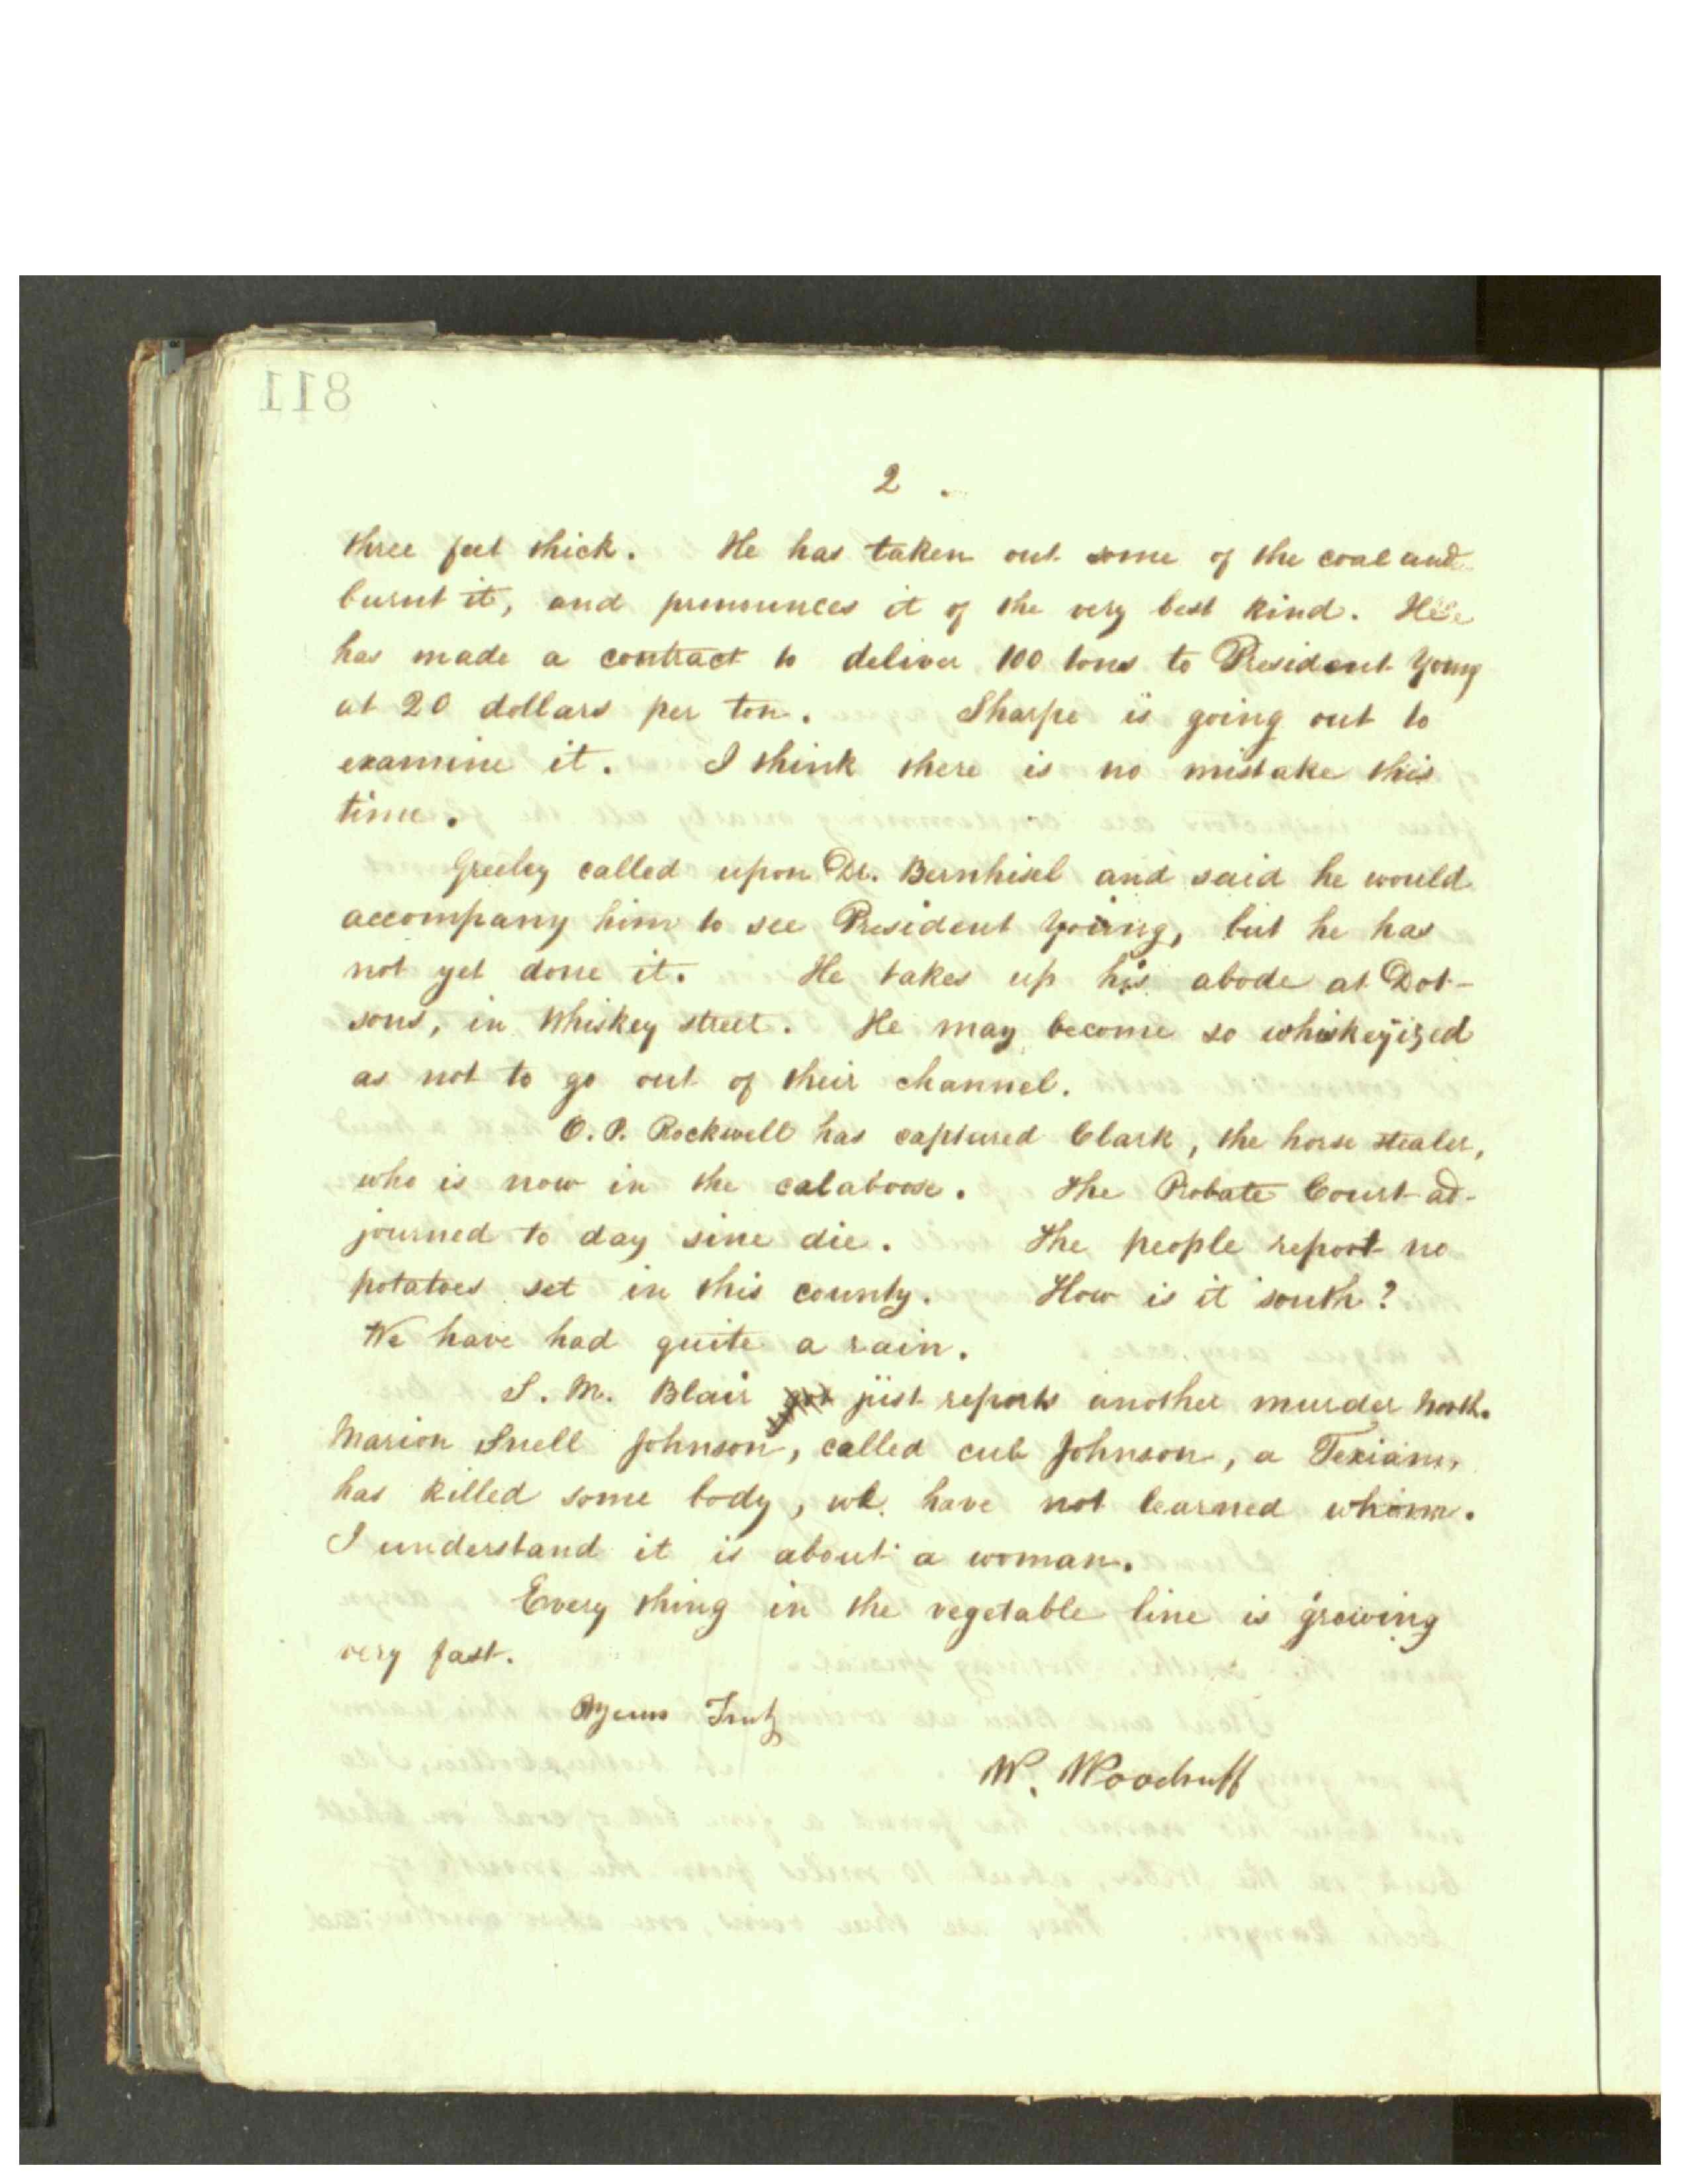 811
2.
three feet thick. He has taken out some of the coal and
burnt it, and pronounces it of the very best kind. He
has made a contract to deliver 100 tons to President Young
at 20 dollars per ton. Sharpe is going out to
examine it. I think there is no mistake this
time.
Greeley called upon Dr. Bernhisel and said he would
accompany him to see President Young, but he has
not yet done it. He takes up his abode at Dot-
sons, in Whiskey street. He may become so whiskeyized
as not to go out of their channel.
O. P. Rockwell has captured Clark, the horse stealer,
who is now in the calaboose. The Probate Court ad-
journed to day sine die. The people report no
potatoes set in this county. How is it south?
We have had quite a rain.
S. M. Blair just reports another murder North.
Marion Snell Johnson, called cub Johnson, a Texian,
has killed some body, we have not learned whom.
I understand it is about a woman.
Every thing in the vegetable line is growing
very fast.
Yours Truly
W. Woodruff